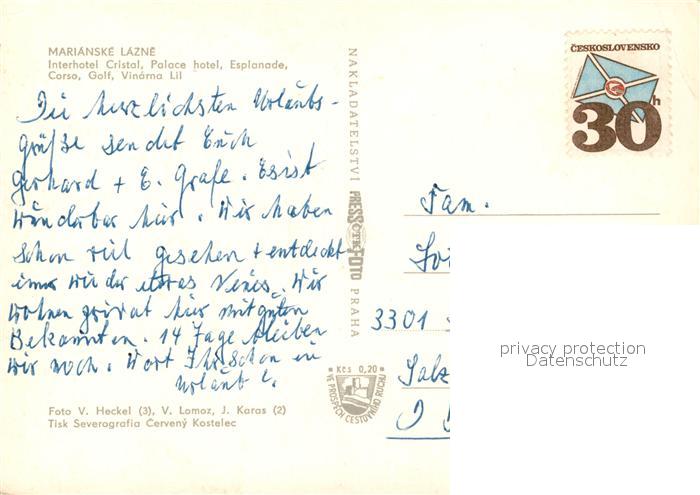 MARIÁNSKÉ LÁZNĚ
Interhotel Cristal, Palace hotel, Esplanade,
Corso, Golf, Vinárna Lil
Die herzlichsten Urlaubs-
grüße sendet Euch
Gerhard + E. Grafe. Es ist
wunderbar hier. Wir haben
schon viel gesehen + entdeckt
immer wieder etwas Neues. Wir
wohnen privat hier mit guten
Bekannten. 14 Tage bleiben
wir noch. Wart Ihr schon in
Urlaub?.
Foto V. Heckel (3), V. Lomoz, J. Karas (2)
Tisk Severografia Červený Kostelec
NAKLADATELSTVÍ PRESSFOTO PRAHA
ČTK
Kčs 0,20
VE PROSPĚCH CESTOVNÍHO RUCHU
ČESKOSLOVENSKO
30h
Fam.
3301
Salz
privacy protection
Datenschutz